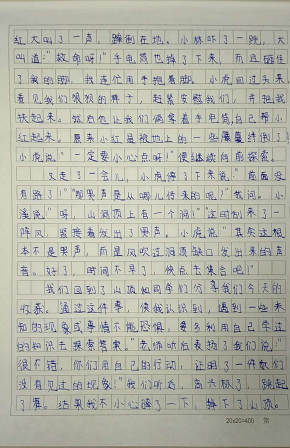 红大叫了一声，跌倒在地。小林吓了一跳，大
叫道："救命呀！"手电筒也掉了下来，而且砸住
了我的脚，我连忙用手抱着脚。小虎回过头来，
看见我们狼狈的样子，赶紧安慰我们，并把我
扶起来。
红起来。原来小红是被地上的一些藤蔓绊倒了！
小虎说："一定要小心点呀！"便继续向前探索。
又走了一会儿，小虎停了下来说："前面没
有路了！""那哭声是从哪儿传来的呢？"我问。小
溪说："呀，山洞顶上有一个洞！"这时刮来了一
阵风，紧接着发出了哭声。小虎说："其实这根
本不是哭声，而是风吹过洞顶缺口发出来的声
音。好了，时间不早了，快点去集合吧！"
我们回到了山顶和同学们分享我们今天的
收获。通过这件事，使我认识到，遇到一些未
知的现象或事情不能恐惧，要多利用自己学过
的知识去探索答案。"老师听后表扬了我们说："
很不错，你们用自己的行动，证明了一件我们
没有见过的现象！"我们听后，高兴极了，跳起
了舞。结果我不小心踩了一下，掉下了山顶。
20x20=400 第